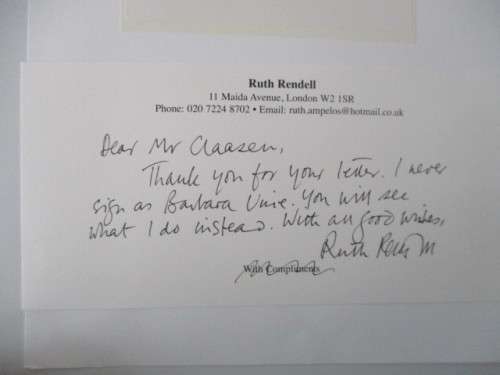 Ruth Rendell
11 Maida Avenue, London W2 1SR
Phone: 020 7224 8702 • Email: ruth.ampelos@hotmail.co.uk
Dear Mr Claasen,
Thank you for your letter. I never
sign as Barbara Vine. You will see
what I do instead. With all good wishes,
Ruth Rendell
With Compliments